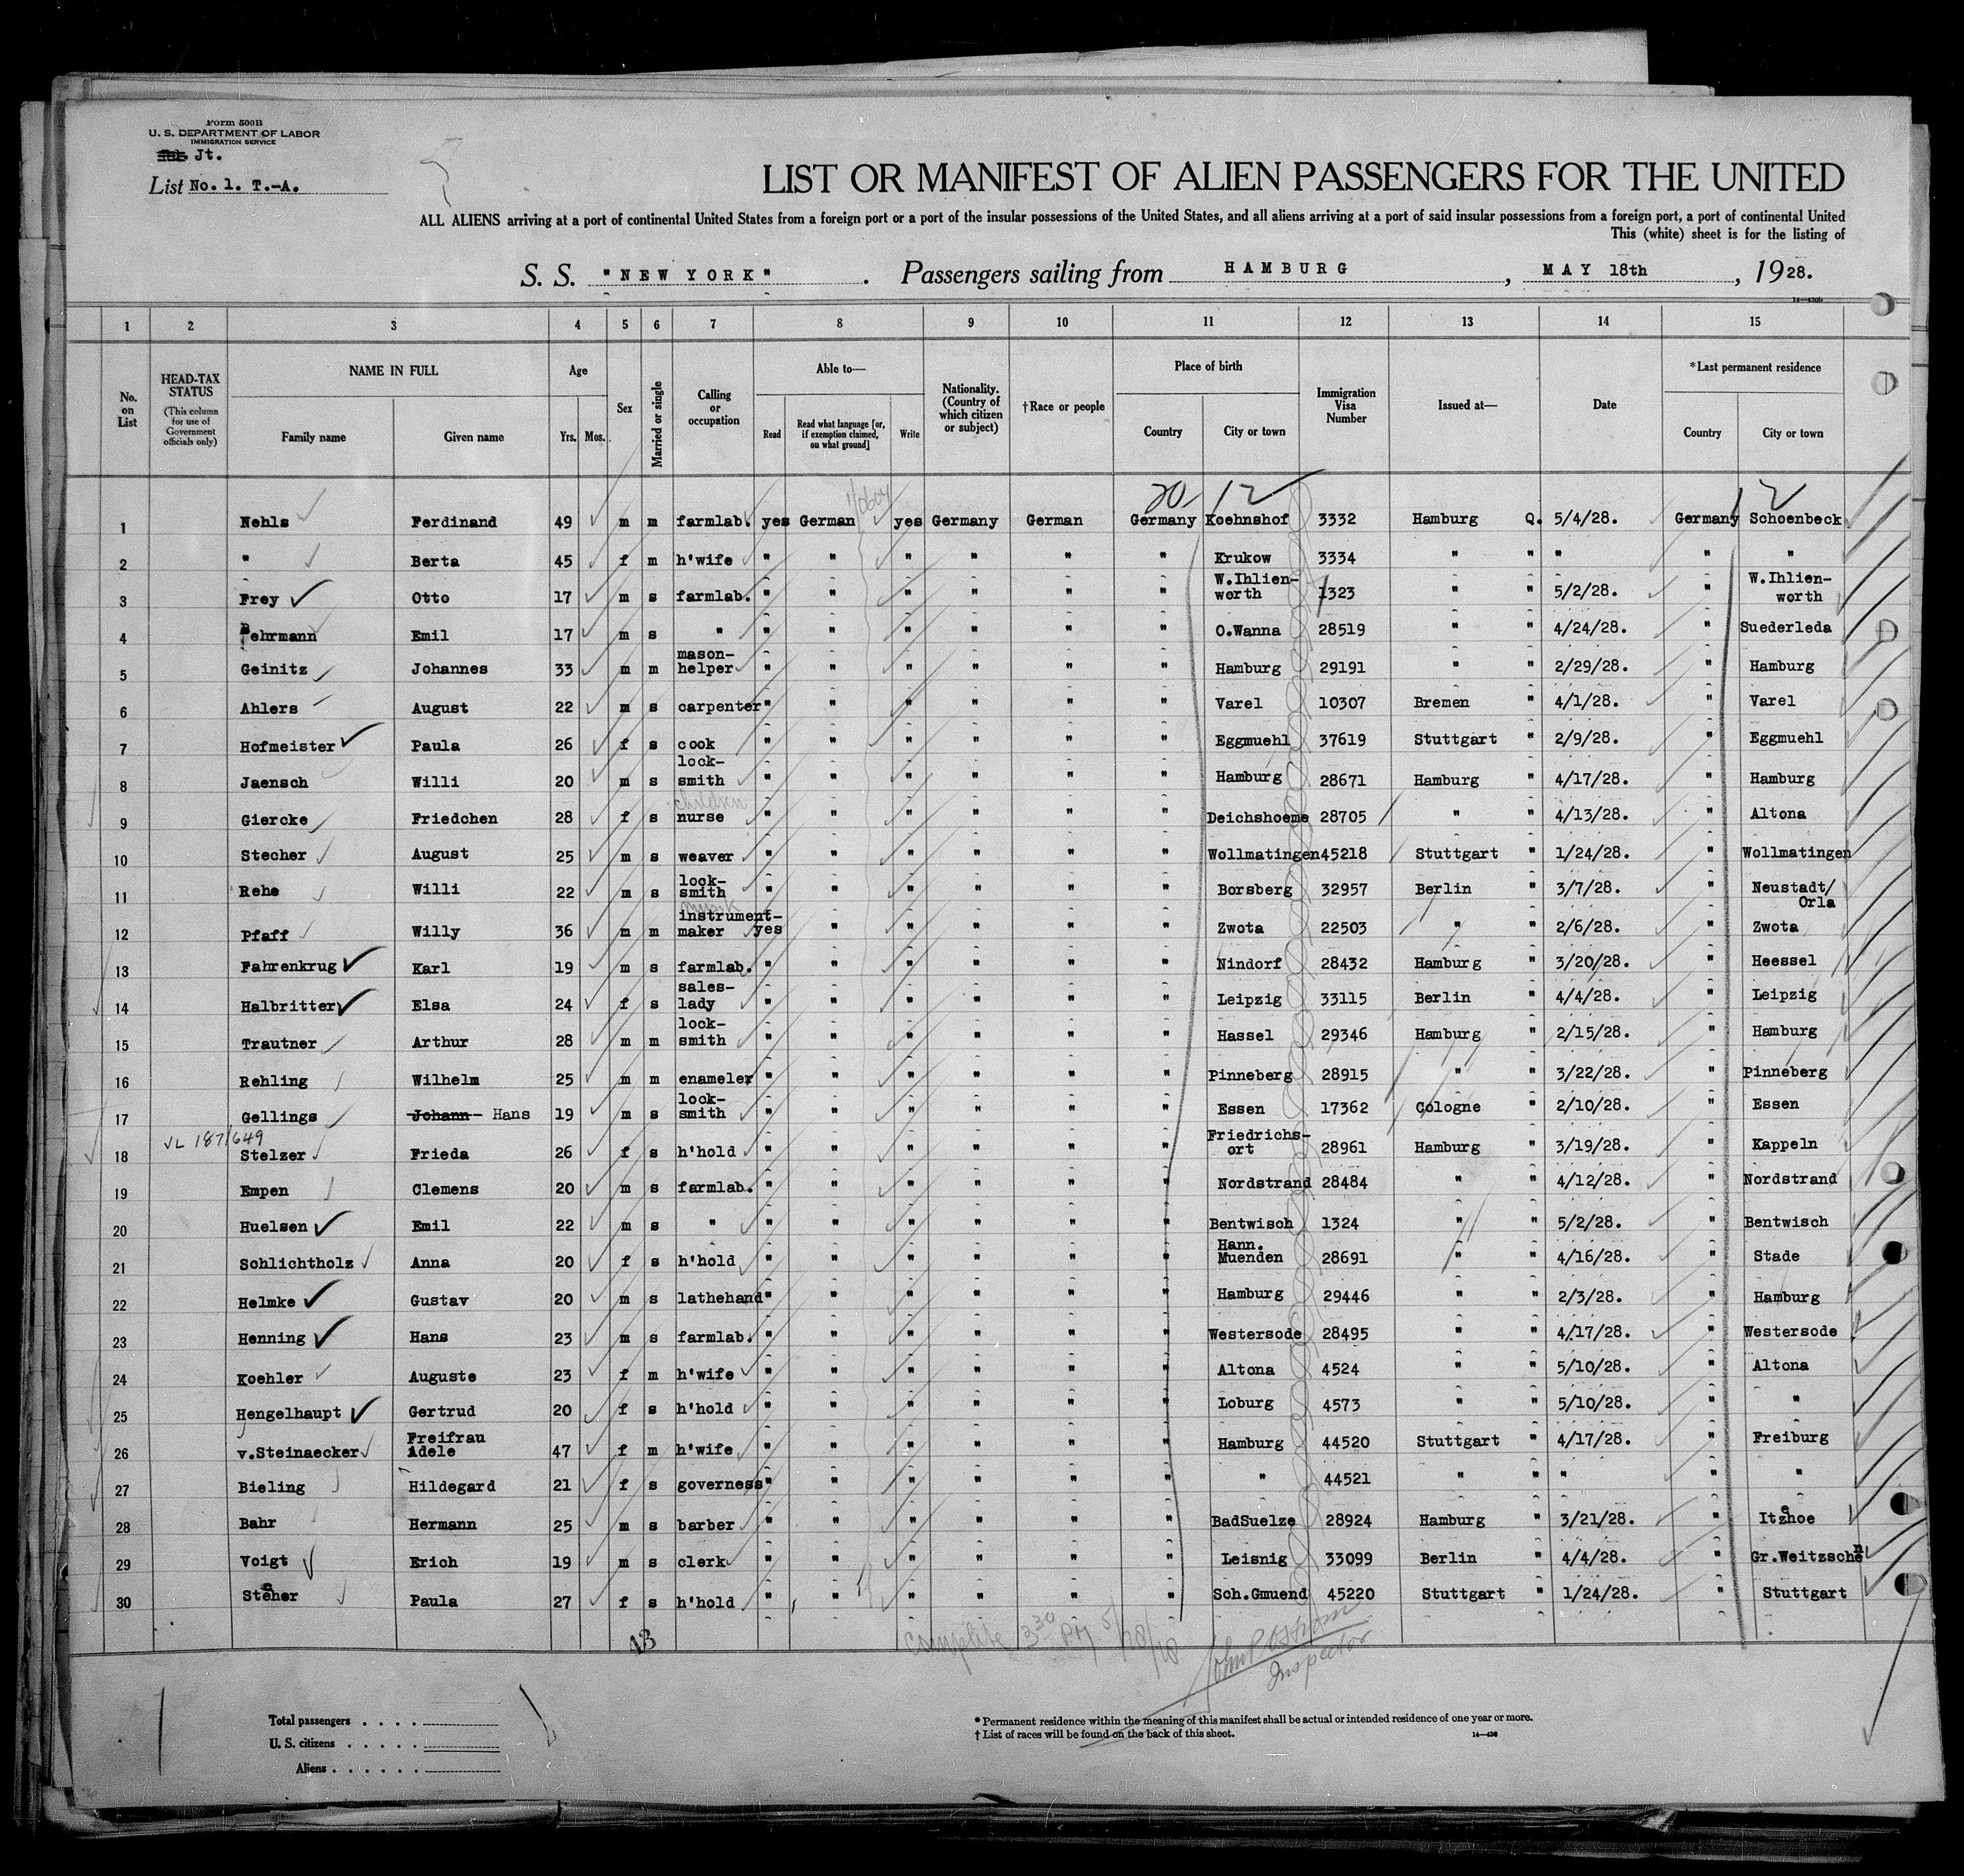 Form 500B
U. S. DEPARTMENT OF LABOR
IMMIGRATION SERVICE
Jt.
List No. 1. T.-A.
LIST OR MANIFEST OF ALIEN PASSENGERS FOR THE UNITED
ALL ALIENS arriving at a port of continental United States from a foreign port or a port of the insular possessions of the United States, and all aliens arriving at a port of said insular possessions from a foreign port, a port of continental United
This (white) sheet is for the listing of
S. S. "NEW YORK" . Passengers sailing from HAMBURG , MAY 18th , 1928.
14—430b
1 2 3 4 5 6 7 8 9 10 11 12 13 14 15
No. on List
HEAD-TAX STATUS
(This column for use of Government officials only)
NAME IN FULL
Family name Given name
Age
Yrs. Mos.
Sex
Married or single
Calling or occupation
Able to—
Read Read what language [or, if exemption claimed, on what ground] Write
Nationality. (Country of which citizen or subject)
†Race or people
Place of birth
Country City or town
Immigration Visa Number
Issued at—
Date
*Last permanent residence
Country City or town
20 12 12
1 Nehls Ferdinand 49 m m farmlab. yes German yes Germany German Germany Koehnshof 3332 Hamburg Q. 5/4/28. Germany Schoenbeck
2 " Berta 45 f m h'wife " " " " " " Krukow 3334 " " " " "
3 Frey Otto 17 m s farmlab. " " " " " " W.Ihlien-worth 1323 " " 5/2/28. " W.Ihlien-worth
4 Behrmann Emil 17 m s " " " " " " " O.Wanna 28519 " " 4/24/28. " Suederleda
5 Geinitz Johannes 33 m m mason-helper " " " " " " Hamburg 29191 " " 2/29/28. " Hamburg
6 Ahlers August 22 m s carpenter " " " " " " Varel 10307 Bremen " 4/1/28. " Varel
7 Hofmeister Paula 26 f s cook " " " " " " Eggmuehl 37619 Stuttgart " 2/9/28. " Eggmuehl
8 Jaensch Willi 20 m s lock-smith " " " " " " Hamburg 28671 Hamburg " 4/17/28. " Hamburg
9 Giercke Friedchen 28 f s children nurse " " " " " " Deichshoeme 28705 " " 4/13/28. " Altona
10 Stecher August 25 m s weaver " " " " " " Wollmatingen 45218 Stuttgart " 1/24/28. " Wollmatingen
11 Rehe Willi 22 m s lock-smith " " " " " " Borsberg 32957 Berlin " 3/7/28. " Neustadt/Orla
12 Pfaff Willy 36 m m musik instrument-maker yes " " " " " Zwota 22503 " " 2/6/28. " Zwota
13 Fahrenkrug Karl 19 m s farmlab. " " " " " " Nindorf 28432 Hamburg " 3/20/28. " Heessel
14 Halbritter Elsa 24 f s sales-lady " " " " " " Leipzig 33115 Berlin " 4/4/28. " Leipzig
15 Trautner Arthur 28 m m lock-smith " " " " " " Hassel 29346 Hamburg " 2/15/28. " Hamburg
16 Rehling Wilhelm 25 m m enameler " " " " " " Pinneberg 28915 " " 3/22/28. " Pinneberg
17 Gellings Johann Hans 19 m s lock-smith " " " " " " Essen 17362 Cologne " 2/10/28. " Essen
VL 187/649
18 Stelzer Frieda 26 f s h'hold " " " " " " Friedrichs-ort 28961 Hamburg " 3/19/28. " Kappeln
19 Empen Clemens 20 m s farmlab. " " " " " " Nordstrand 28484 " " 4/12/28. " Nordstrand
20 Huelsen Emil 22 m s " " " " " " " Bentwisch 1324 " " 5/2/28. " Bentwisch
21 Schlichtholz Anna 20 f s h'hold " " " " " " Hann. Muenden 28691 " " 4/16/28. " Stade
22 Helmke Gustav 20 m s lathehand " " " " " " Hamburg 29446 " " 2/3/28. " Hamburg
23 Henning Hans 23 m s farmlab. " " " " " " Westersode 28495 " " 4/17/28. " Westersode
24 Koehler Auguste 23 f m h'wife " " " " " " Altona 4524 " " 5/10/28. " Altona
25 Hengelhaupt Gertrud 20 f s h'hold " " " " " " Loburg 4573 " " 5/10/28. " "
26 v.Steinaecker Freifrau Adele 47 f m h'wife " " " " " " Hamburg 44520 Stuttgart " 4/17/28. " Freiburg
27 Bieling Hildegard 21 f s governess " " " " " " " 44521 " " " " "
28 Bahr Hermann 25 m s barber " " " " " " BadSuelze 28924 Hamburg " 3/21/28. " Itzehoe
29 Voigt Erich 19 m s clerk " " " " " " Leisnig 33099 Berlin " 4/4/28. " Gr.Weitzschen
30 Paula 27 f s h'hold " " " " " " Sch.Gmuend 45220 Stuttgart " 1/24/28. " Stuttgart
13
Complete 3 30 PM 5/28/28
Inspector
Total passengers . . . .
U. S. citizens . . . . .
Aliens . . . . . .
* Permanent residence within the meaning of this manifest shall be actual or intended residence of one year or more.
† List of races will be found on the back of this sheet.
14—430